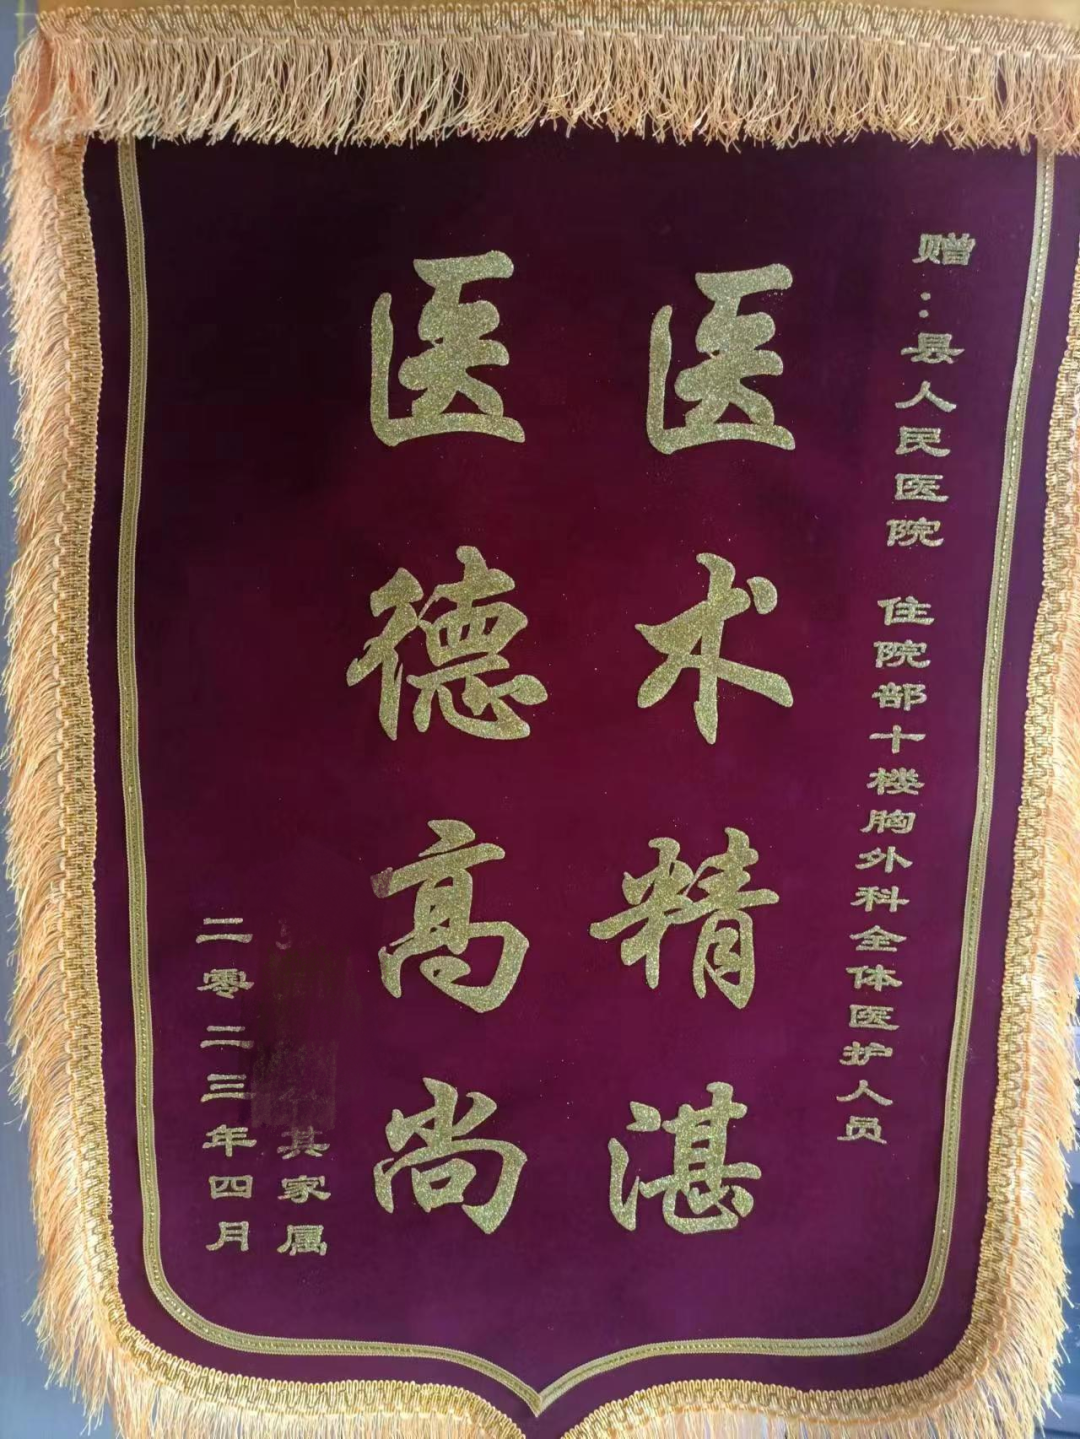 赠：县人民医院 住院部十楼胸外科全体医护人员
医术精湛
医德高尚
其家属
二零二三年四月